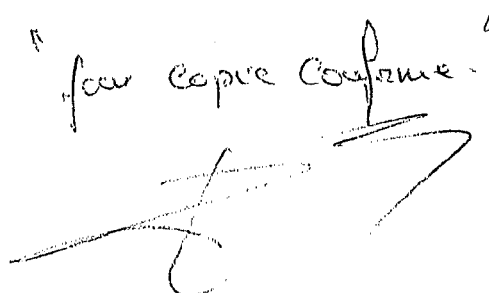 "Pour copie conforme."